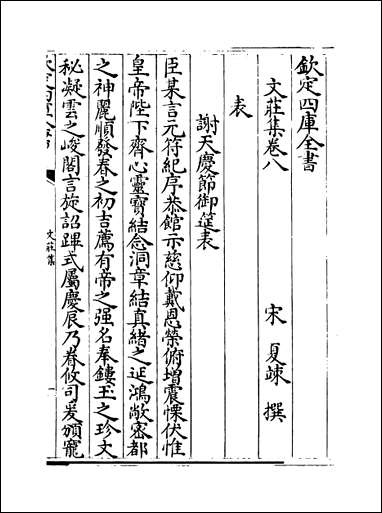 欽定四庫全書
文莊集卷八
宋 夏竦 撰
表
謝天慶節御筵表
臣某言元符紀序恭館示慈仰戴恩榮俯增震慄伏惟
皇帝陛下齊心靈寶結念洞章結真緒之延鴻敞宻都
之神麗順發春之初吉薦有帝之强名奉鏤玉之珍文
秘凝雲之峻閣言旋詔蹕式屬慶辰乃眷攸司爰頒寵
文莊集
一